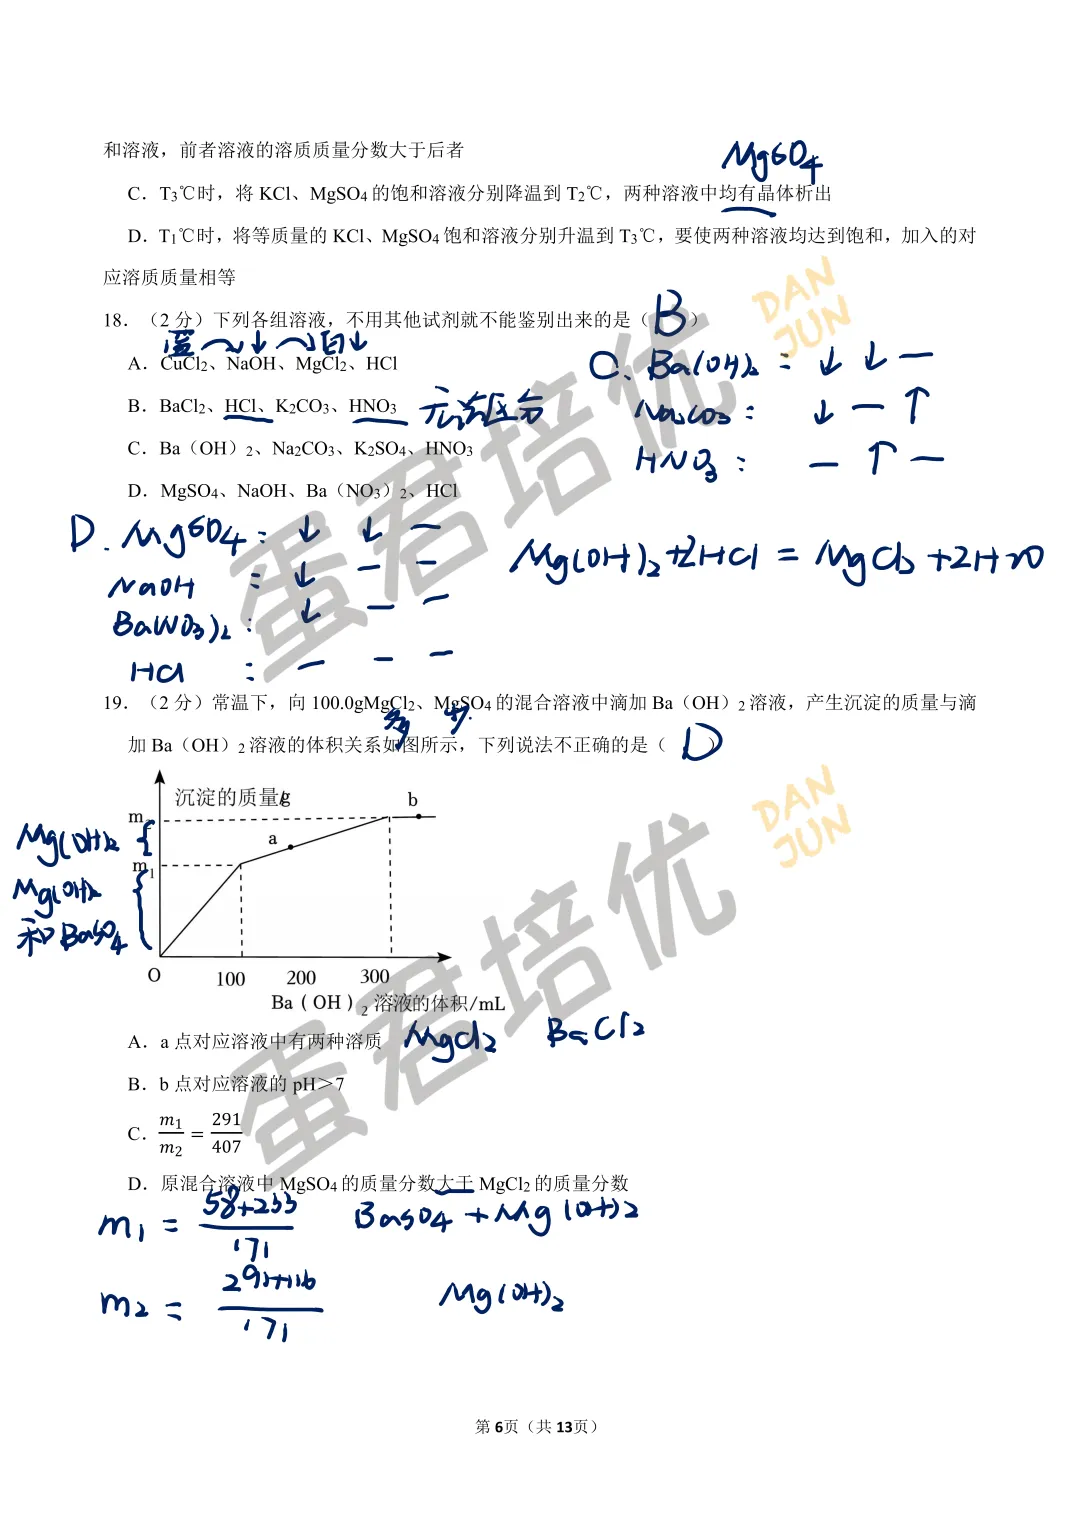 和溶液，前者溶液的溶质质量分数大于后者
MgSO4
C．T3℃时，将 KCl、MgSO4 的饱和溶液分别降温到 T2℃，两种溶液中均有晶体析出
D．T1℃时，将等质量的 KCl、MgSO4 饱和溶液分别升温到 T3℃，要使两种溶液均达到饱和，加入的对
应溶质质量相等
18．（2 分）下列各组溶液，不用其他试剂就不能鉴别出来的是（ B ）
蓝 ↓ 白↓
A．CuCl2、NaOH、MgCl2、HCl
B．BaCl2、HCl、K2CO3、HNO3 无法区分
C．Ba（OH）2、Na2CO3、K2SO4、HNO3
D．MgSO4、NaOH、Ba（NO3）2、HCl
C. Ba(OH)2 : ↓ ↓ —
Na2CO3 : ↓ — ↑
HNO3 : — ↑ —
D. MgSO4 : ↓ ↓ —
NaOH : ↓ — —
Ba(NO3)2 : ↓ — —
HCl : — — —
Mg(OH)2+2HCl = MgCl2+2H2O
19．（2 分）常温下，向 100.0gMgCl2、MgSO4 的混合溶液中滴加 Ba（OH）2 溶液，产生沉淀的质量与滴
多 少
加 Ba（OH）2 溶液的体积关系如图所示，下列说法不正确的是（ D ）
沉淀的质量/g
b
m2
a
m1
Mg(OH)2
Mg(OH)2
和BaSO4
O 100 200 300
Ba（OH）2 溶液的体积/mL
A．a 点对应溶液中有两种溶质 MgCl2 BaCl2
B．b 点对应溶液的 pH＞7
C．m1/m2 = 291/407
D．原混合溶液中 MgSO4 的质量分数大于 MgCl2 的质量分数
m1 = 58+233/171 BaSO4+Mg(OH)2
m2 = 291+116/171 Mg(OH)2
第 6页（共 13页）
蛋君培优
DAN
JUN
蛋君培优
DAN
JUN